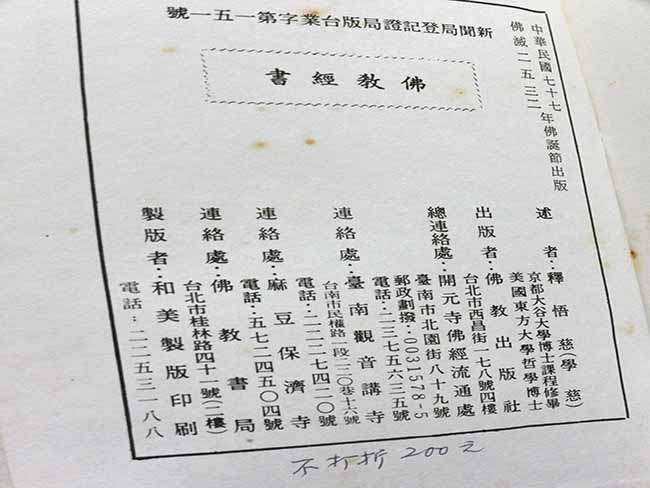 中華民國七十七年佛誕節出版
佛滅二五三二
新聞局登記證局版台業字第一五一號
佛教經書
述者：釋悟慈(學慈)
京都大谷大學博士課程修畢
美國東方大學哲學博士
出版者：佛教出版社
台北市西昌街一七八號四樓
總連絡處：開元寺佛經流通處
臺南市北園街八十九號
郵政劃撥：0031578-5
電話：二三七五六三五號
連絡處：臺南觀音講寺
台南市民權路一段二二〇巷十六號
電話：二二二七四二〇號
連絡處：麻豆保濟寺
電話：五七二四五〇四號
連絡處：佛教書局
台北市桂林路四十一號(二樓)
製版者：和美製版印刷
電話：二二五三一八八
不打折 200元